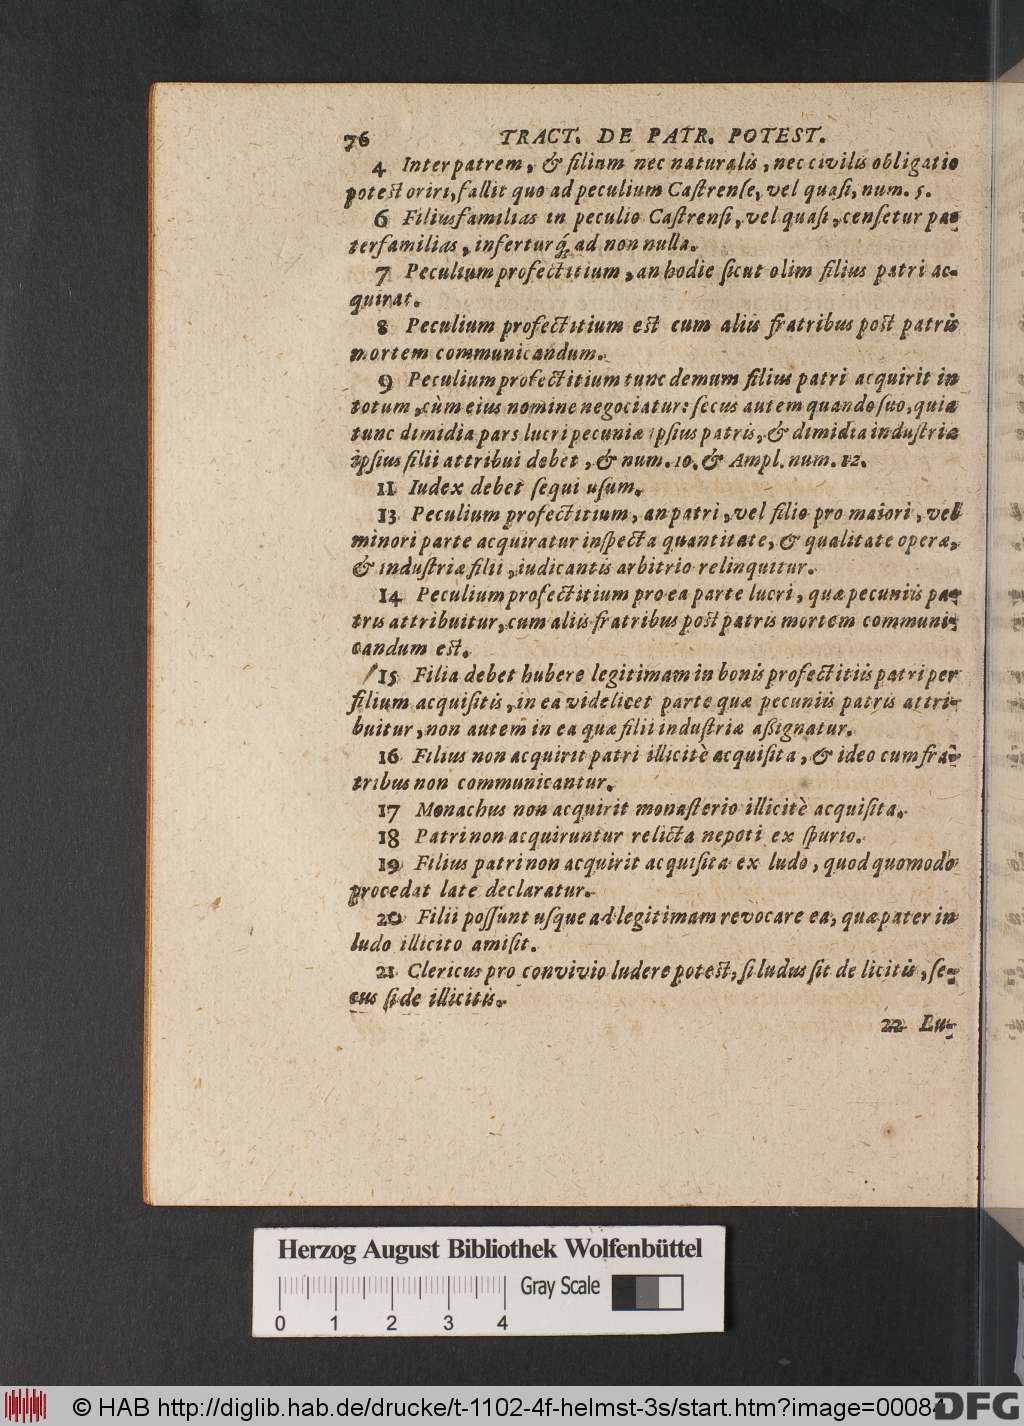 76 TRACT. DE PATR. POTEST.
4 Inter patrem, & filium nec naturalis, nec civilis obligatio
potest oriri, fallit quo ad peculium Castrense, vel quasi, num. 5.
6 Filiusfamilias in peculio Castrensi, vel quasi, censetur pa-
terfamilias, inferturq́; ad non nulla.
7 Peculium profectitium, an hodie sicut olim filius patri ac-
quirat.
8 Peculium profectitium est cum aliis fratribus post patris
mortem communicandum.
9 Peculium profectitium tunc demum filius patri acquirit in
totum, cùm eius nomine negociatur: secus autem quando suo, quia
tunc dimidia pars lucri pecuniæ ipsius patris, & dimidia industriæ
ipsius filii attribui debet, & num. 10. & Ampl. num. 12.
11 Iudex debet sequi usum.
13 Peculium profectitium, an patri, vel filio pro maiori, vel
minori parte acquiratur inspecta quantitate, & qualitate operæ,
& industriæ filii, iudicantis arbitrio relinquitur.
14 Peculium profectitium pro ea parte lucri, quæ pecuniis pa-
tris attribuitur, cum aliis fratribus post patris mortem communi-
candum est.
15 Filia debet hubere legitimam in bonis profectitiis patri per
filium acquisitis, in ea videlicet parte quæ pecuniis patris attri-
buitur, non autem in ea quæ filii industriæ assignatur.
16 Filius non acquirit patri illicitè acquisita, & ideo cum fra-
tribus non communicantur.
17 Monachus non acquirit monasterio illicitè acquisita.
18 Patri non acquiruntur relicta nepoti ex spurio.
19 Filius patri non acquirit acquisita ex ludo, quod quomodo
procedat late declaratur.
20 Filii possunt usque ad legitimam revocare ea, quæ pater in
ludo illicito amisit.
21 Clericus pro convivio ludere potest, si ludus sit de licitis, se-
cus si de illicitis.
22 Lu-
Herzog August Bibliothek Wolfenbüttel
Gray Scale
0 1 2 3 4
© HAB http://diglib.hab.de/drucke/t-1102-4f-helmst-3s/start.htm?image=00084
DFG